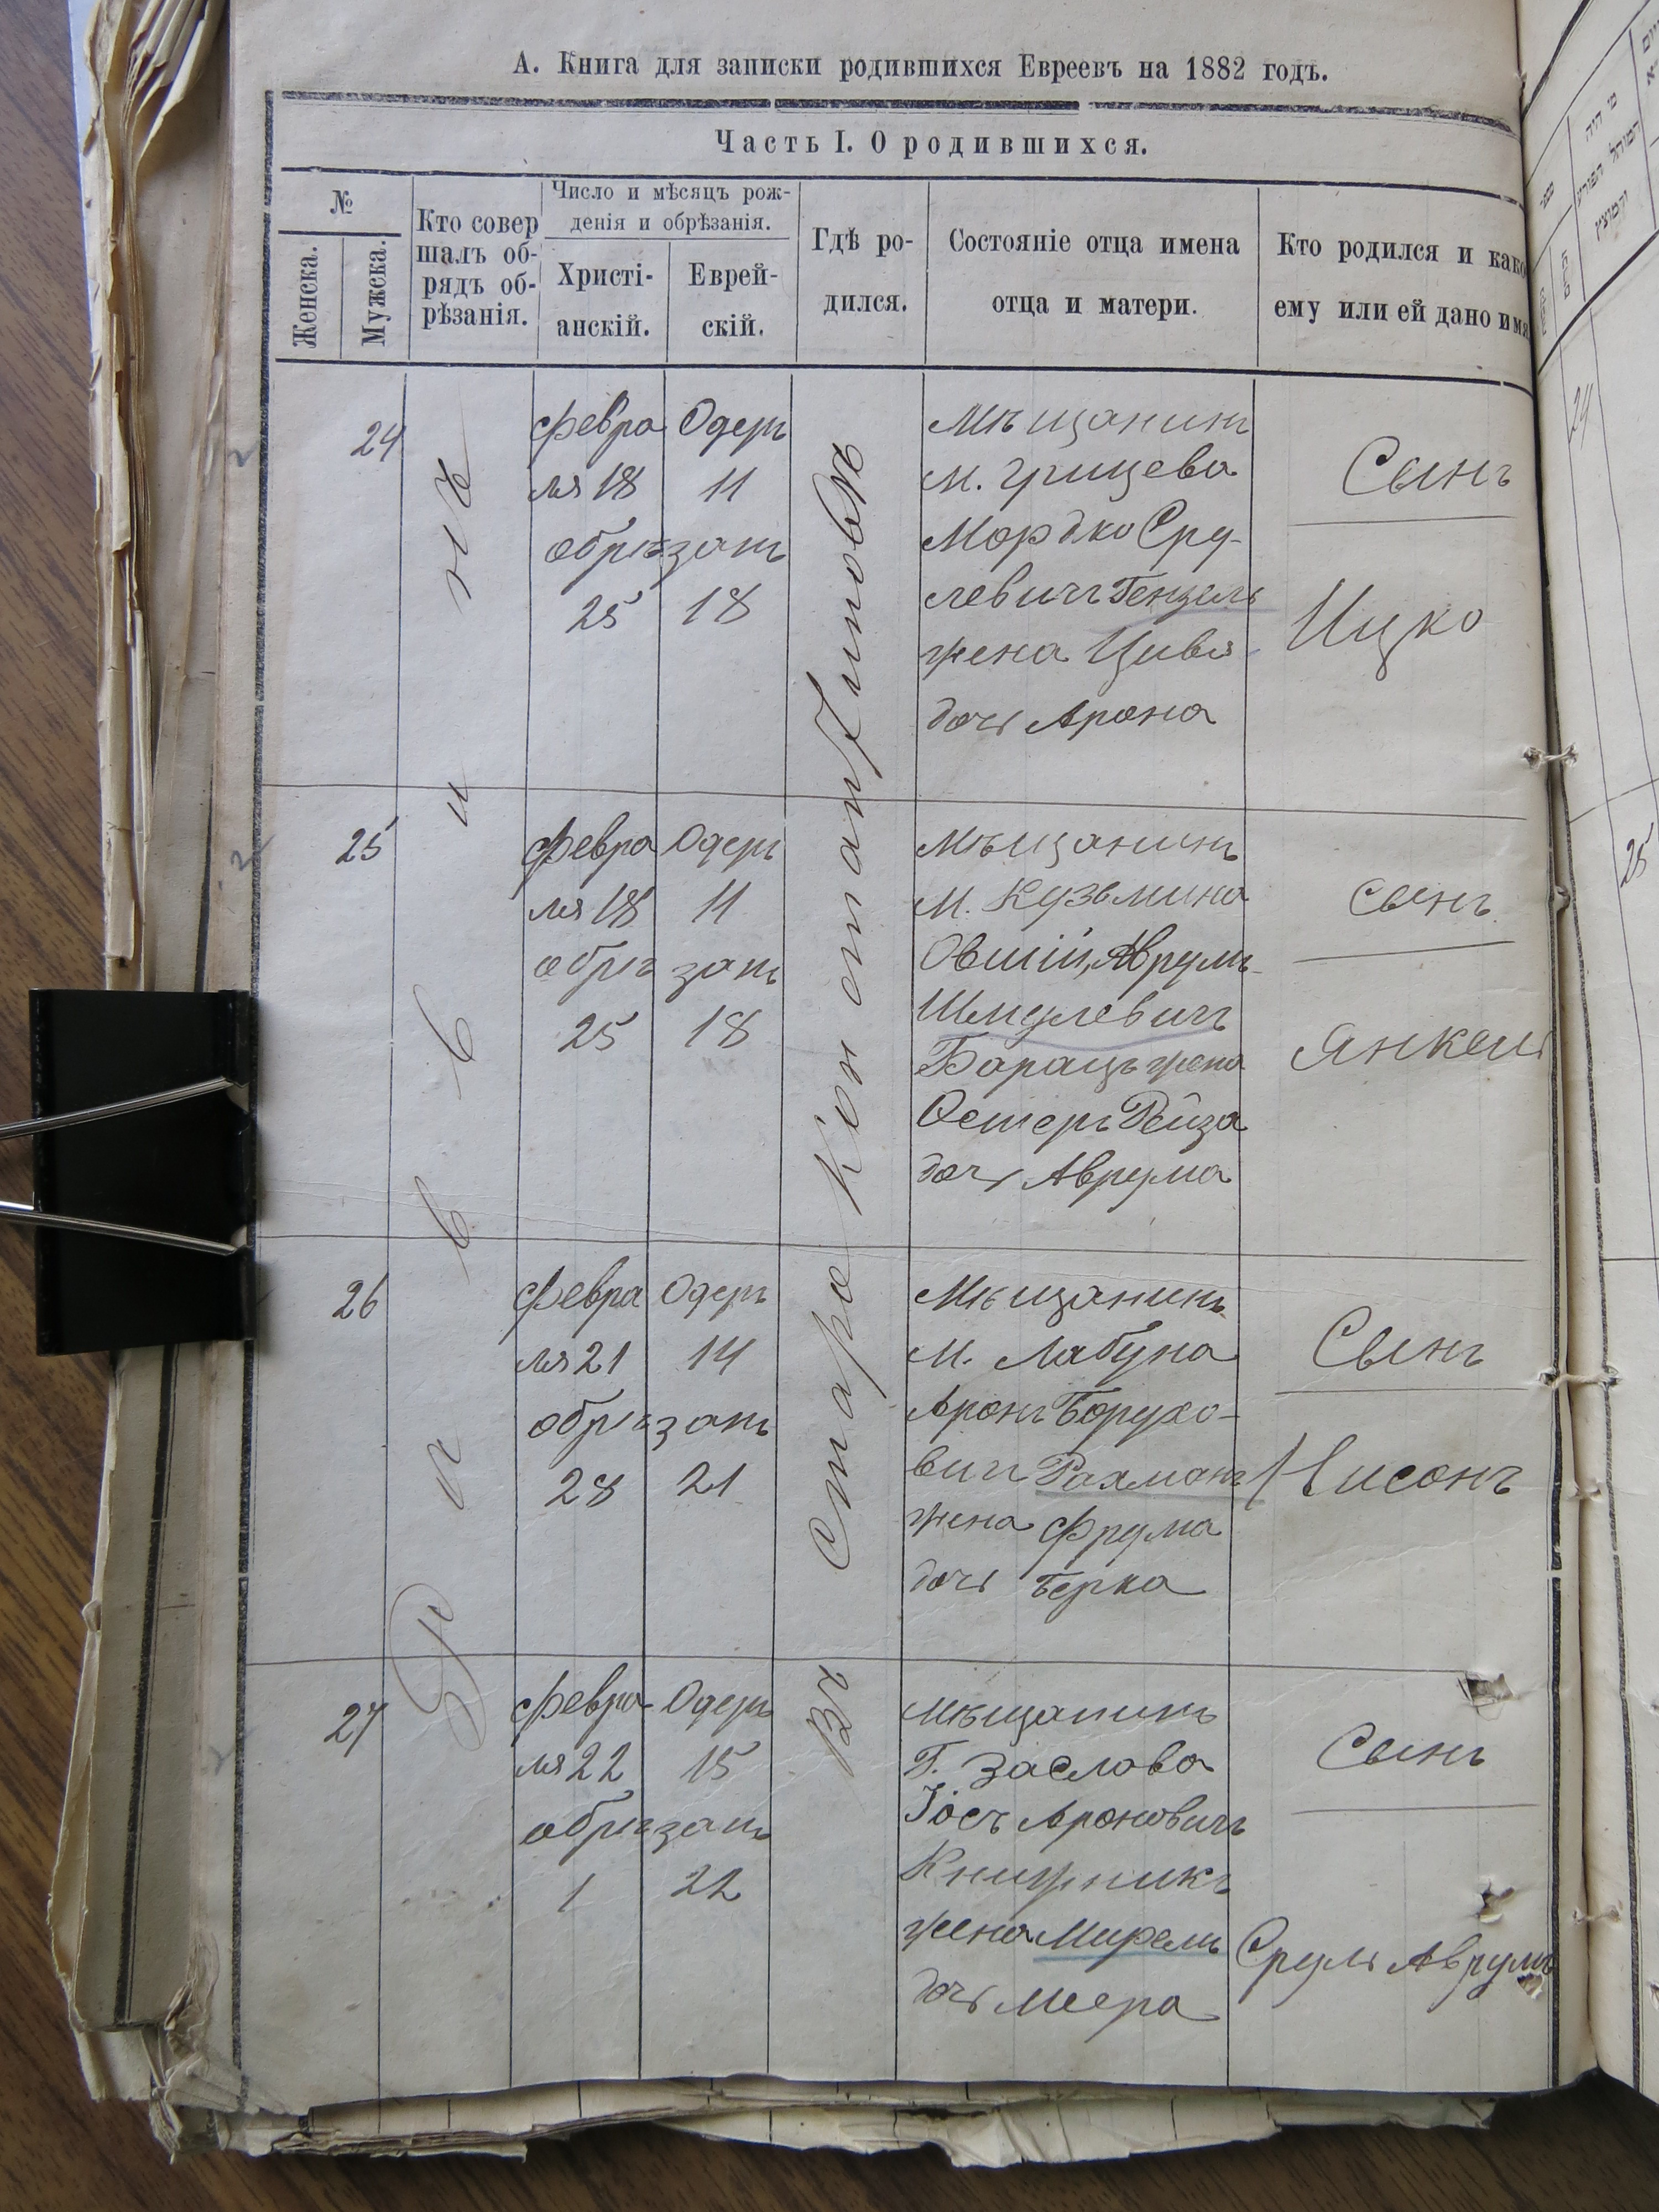 А. Книга для записки родившихся Евреевъ на 1882 годъ.
Часть I. О родившихся.
№
Женска.
Мужска.
Кто совер
шалъ об-
рядъ об-
рѣзанія.
Число и мѣсяцъ рож-
денія и обрѣзанія.
Христі-
анскій.
Еврей-
скій.
Гдѣ ро-
дился.
Состояніе отца имена
отца и матери.
Кто родился и како
ему или ей дано имя
Раввинъ
Въ Старо Константиновѣ
24
Февра Одеръ
ля 18 11
обрѣзанъ
25 18
Мѣщанинъ
м. Грицева
Мордко Сру-
левичъ Гензель
жена Цивя
дочь Арона
Сынъ
Ицко
25
Февра Одеръ
ля 18 11
обрѣзанъ
25 18
Мѣщанинъ
м. Кузьмина
Овшій, Аврумъ
Шмулевичъ
Барацъ жена
Естеръ Рейза
дочь Аврума
Сынъ
Янкель
26
Февра Одеръ
ля 21 14
обрѣзанъ
28 21
Мѣщанинъ
м. Лабуна
Аронъ Борухо-
вичъ Рахманъ
жена Фрума
дочь Берка
Сынъ
Нисонъ
27
Февра Одеръ
ля 22 15
обрѣзанъ
1 22
Мѣщанинъ
г. Заслава
Іосъ Ароновичъ
Книжникъ
жена Мирель
дочь Меера
Сынъ
Сруль Аврумъ
24
25